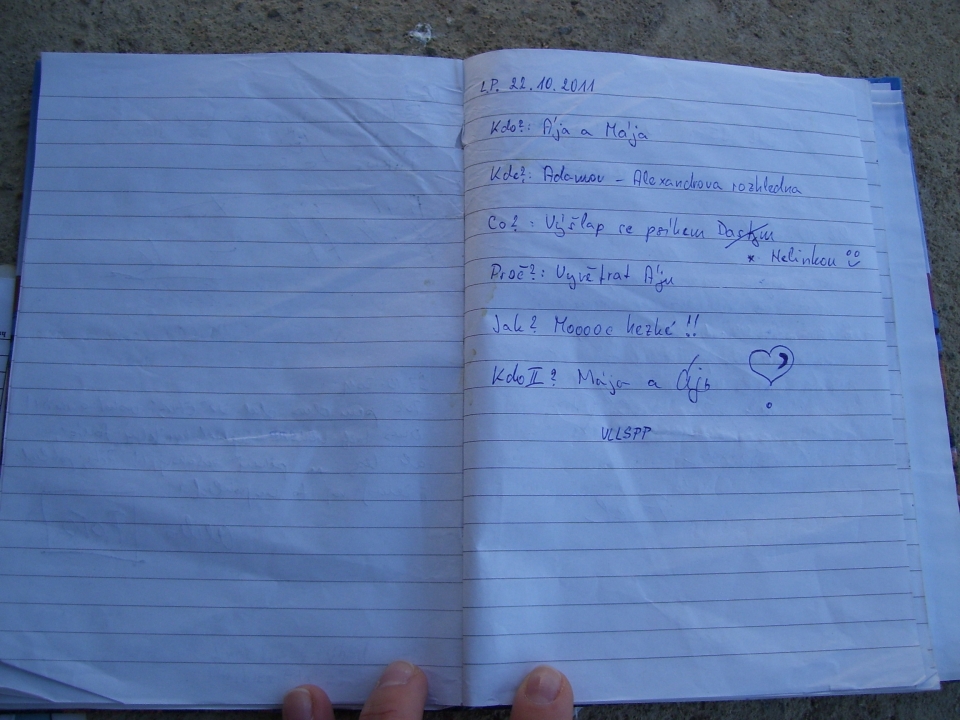 L.P. 22.10.2011
Kdo?: Ája a Mája
Kde?: Adamov - Alexandrova rozhledna
Co?: Výšlap se psíkem
* Nelinkou
Proč?: Vyvětrat Áju
Jak? Moooc hezké !!
Kdo II? Mája a Ája
VLLSPP